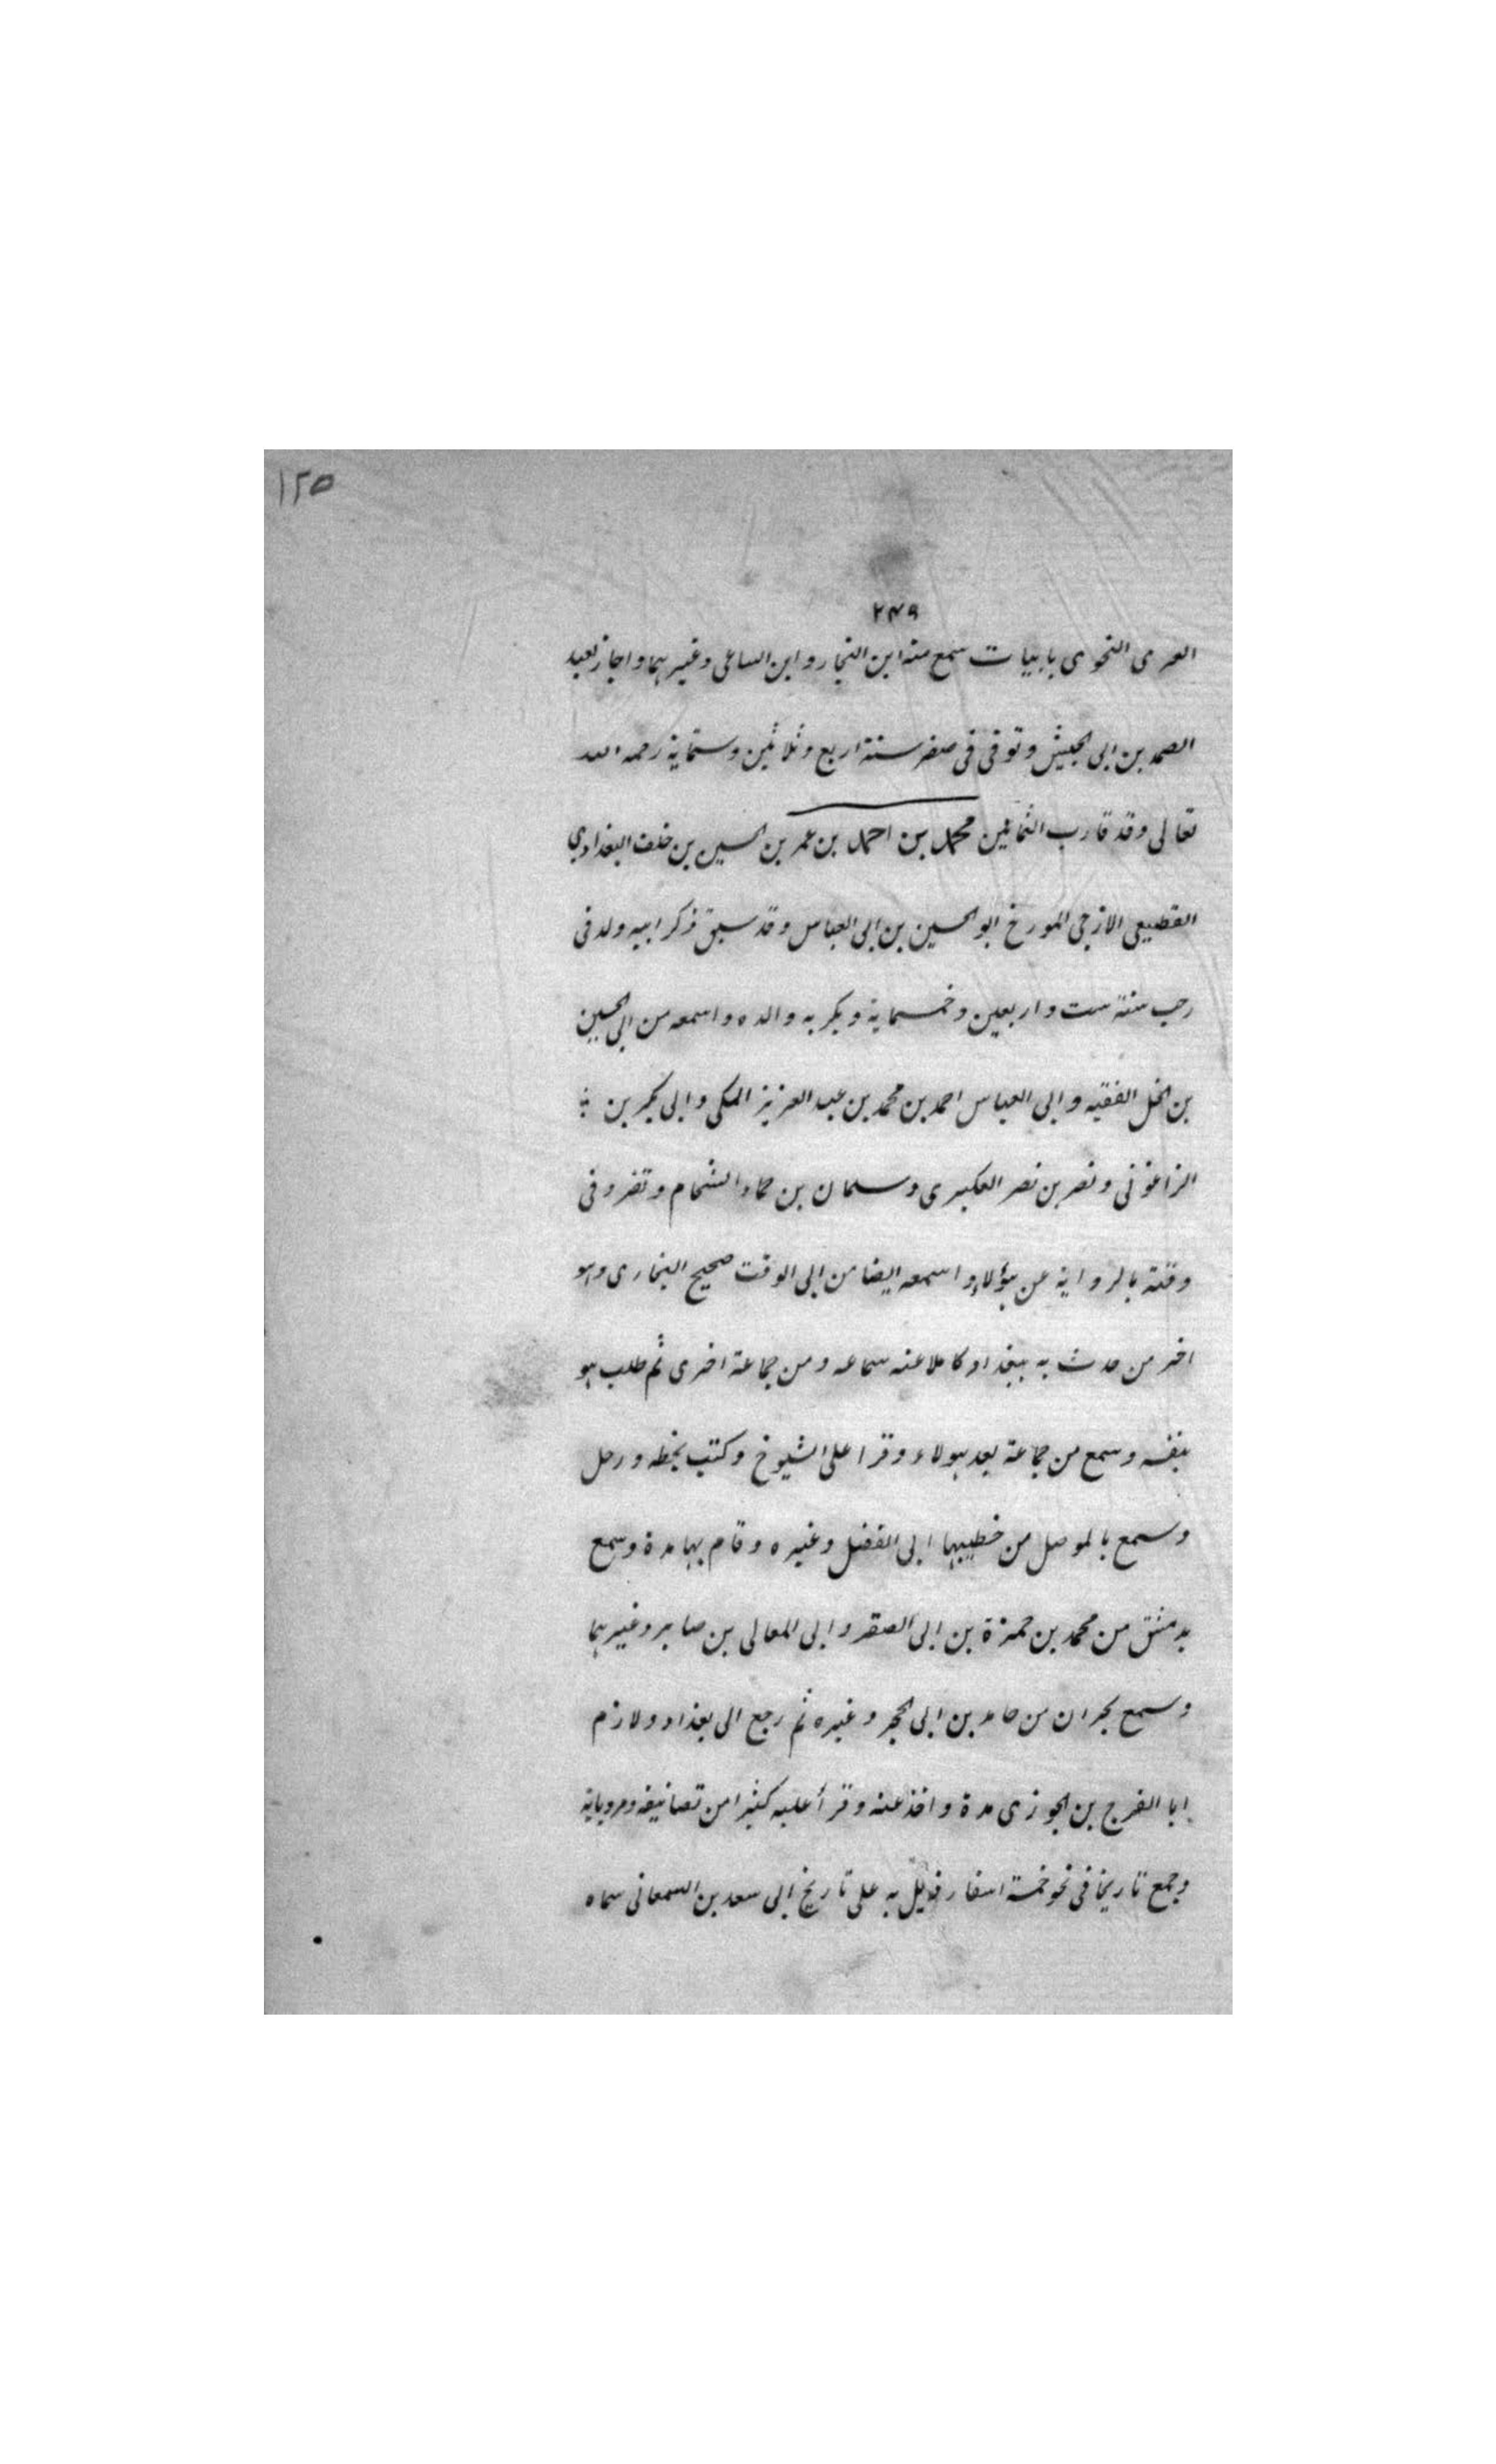 ١٢٥
٢٤٩
العمرى النحوى بابيات سمع منه ابن النجار وابن الساعى وغيرهما واجاز لعبد
الصمد بن ابى الجيش وتوفى فى صفر سنة اربع وثلاثين وستماية رحمه الله
تعالى وقد قارب الثمانين محمد بن احمد بن عمر بن الحسين بن خلف البغدادي
القطيعى الازجى المورخ ابو الحسين بن ابى العباس وقد سبق ذكر ابيه ولد فى
رجب سنة ست واربعين وخمسماية وبكر به والده واسمعه من ابى الحسين
بن الخل الفقيه وابى العباس احمد بن محمد بن عبد العزيز المكى وابى بكر بن
الزاغونى ونصر بن نصر العكبرى وسلمان بن حماد الشحام وتفرد فى
وقته بالرواية عن هؤلاء واسمعه ايضا من ابى الوقت صحيح البخارى وهو
اخر من حدث به ببغداد كاملا عنه سماعه ومن جماعة اخرى ثم طلب هو
بنفسه وسمع من جماعة بعد هولاء وقرا على الشيوخ وكتب بخطه ورحل
وسمع بالموصل من خطيبها ابى الفضل وغيره وقام بها مدة وسمع
بدمشق من محمد بن حمزة بن ابى الصقر وابى المعالى بن صابر وغيرهما
وسمع بحران من حامد بن ابى الحجر وغيره ثم رجع الى بغداد ولازم
ابا الفرج بن الجوزى مدة واخذ عنه وقرأ عليه كثيرا من تصانيفه ومروياته
وجمع تاريخا فى نحو خمسة اسفار ذيل به على تاريخ ابى سعد بن السمعانى سماه